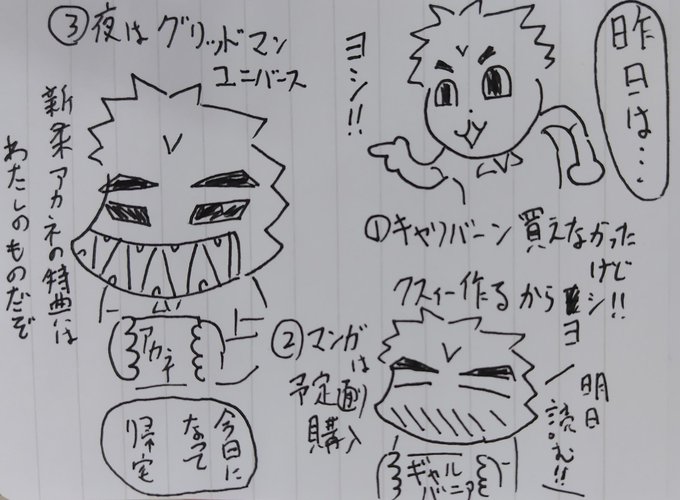 昨日は…
ヨシ!!
①キャリバーン買えなかった
けど
クスィー作るからヨシ!!
②マンガ
は
予定通り
購入
明日
読む!!
ギャル
バニア
③夜はグリッドマン
ユニバース
新条アカネの特典は
わたしのものだぞ
アカネ
今日に
なって
帰宅